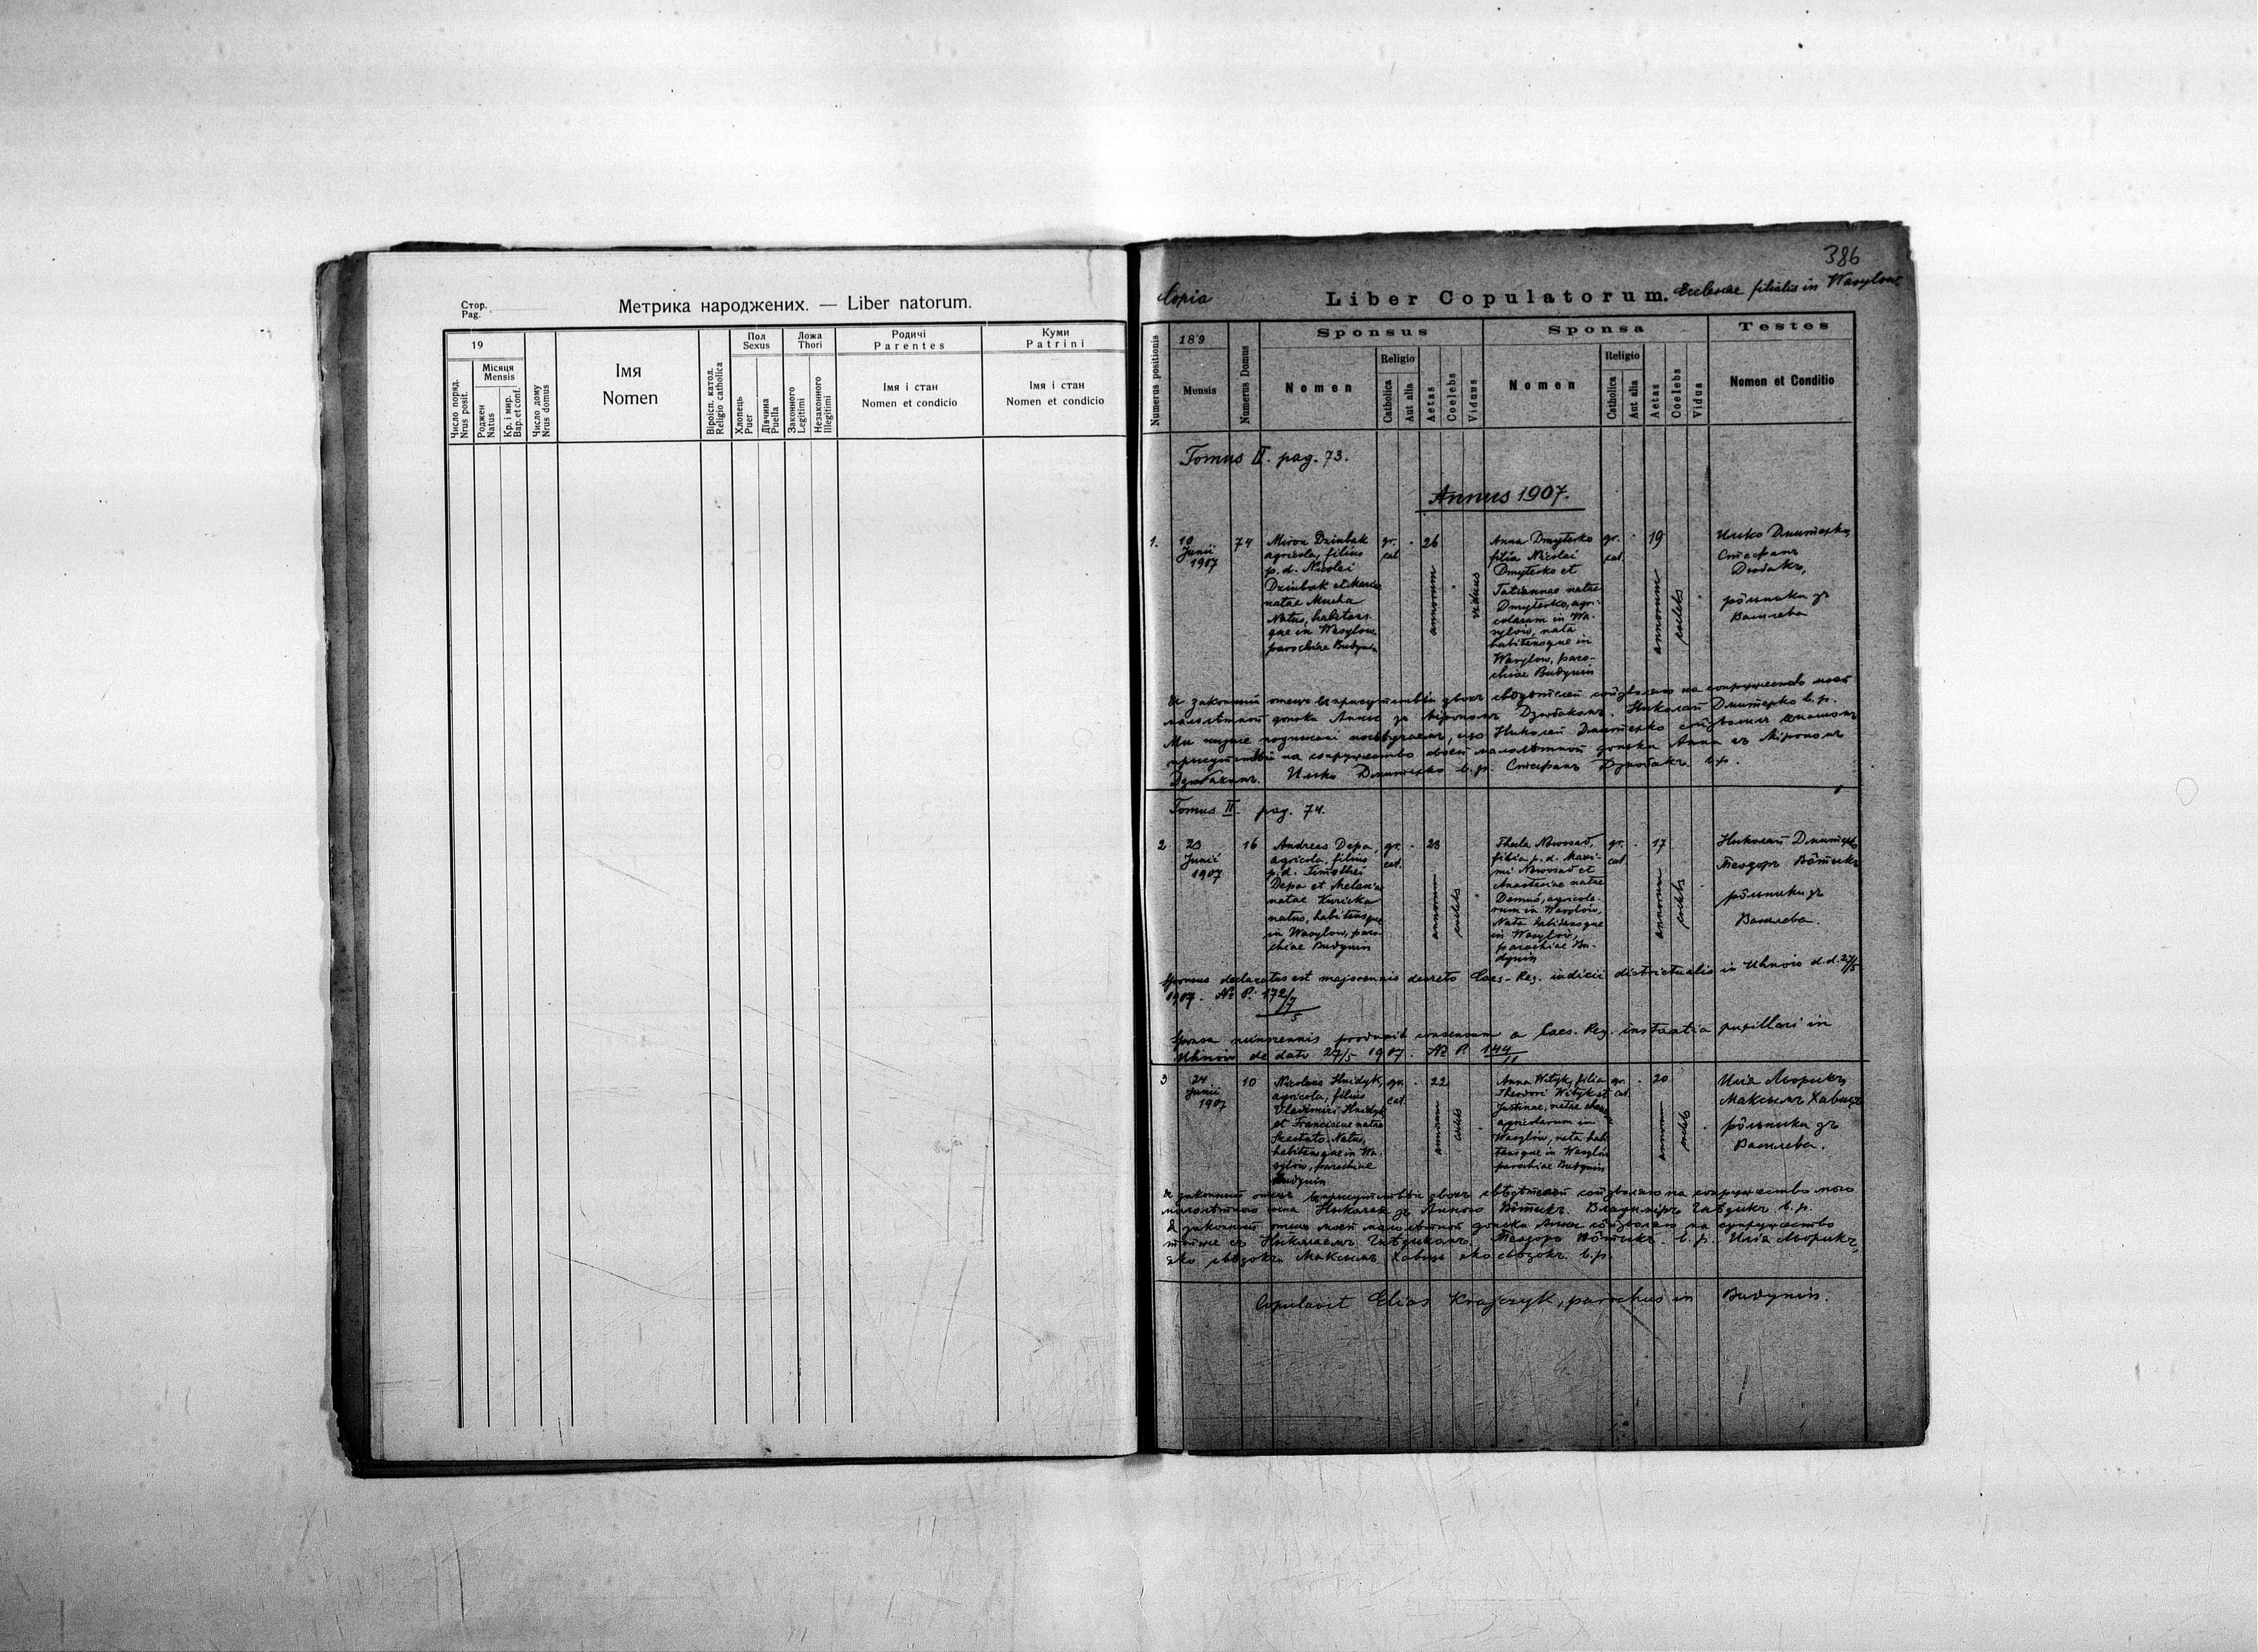 Стор.
Pag.
Метрика народжених. — Liber natorum.
19
Місяця
Mensis
Число поряд.
Nrus posit.
Роджен
Natus
Кр. і мир.
Bap. et conf.
Число дому
Nrus domus
Імя
Nomen
Віроісп. катол.
Religio catholica
Пол
Sexus
Хлопець
Puer
Дівчина
Puella
Ложа
Thori
Законного
Legitimi
Незаконного
Illegitimi
Родичі
Parentes
Імя і стан
Nomen et condicio
Куми
Patrini
Імя і стан
Nomen et condicio
386
Copia
Liber Copulatorum. Ecclesiae filialis in Wasylow
Numerus positionis
189
Mensis
Numerus Domus
Sponsus
Nomen
Religio
Catholica
Aut alia
Aetas
Coelebs
Viduus
Sponsa
Nomen
Religio
Catholica
Aut alia
Aetas
Coelebs
Vidua
Testes
Nomen et Conditio
Tomus II. pag. 73.
Annus 1907.
1.
10
Junii
1907
74
Miron Dziubak
agricola, filius
p. d. Nicolai
Dziubak et Mariae
natae Mucha
Natus, habitans
que in Wasylow
parochiae Budynin
gr.
cat.
26
annorum
viduus
Anna Dmyterko
filia Nicolai
Dmyterko et
Tatiannae natae
Dmyterko, agri-
colarum in Wa-
sylow, nata
habitansque in
Wasylow, paro-
chiae Budynin
gr.
cat.
19
annorum
coelebs
Илько Дмитерко
Стефанъ
Дзюбакъ,
рôльники зъ
Василева
Я законный отець въ присутствіи двохъ свѣдѣтелей соизволяю на сопружество моей
малолѣтной доньки Анны зъ Мірономъ Дзюбакомъ. Николай Дмитерко в. р.
Ми нижше подписані посвѣдчаемъ, що Николай Дмитерко соизволилъ въ нашомъ
присутствіи на сопружество своей малолѣтной доньки Анна съ Мірономъ
Дзюбакомъ. Илько Дмитерко в. р. Стефанъ Дзюбакъ. в. р.
Tomus II. pag. 74.
2
23
Junii
1907
16
Andreas Depa,
agricola, filius
p. d. Timothei
Depa et Melaniae
natae Kuricka
natus, habitansque
in Wasylow, paro-
chiae Budynin
gr.
cat.
23
annorum
coelebs
Thecla Nowosad,
filia p. d. Maxi-
mi Nowosad et
Anastasiae natae
agricola-
rum in Wasylow,
Nata habitansque
in Wasylow,
parochiae Bu-
dynin
gr.
cat.
17
annorum
coelebs
Николай Дмитерко
Теодоръ Вôтыкъ
рôльники зъ
Василева.
Sponsus declaratus est majorennis decreto Caes-Reg. iudicii districtualis in Uhnow d. d. 27/5
1907. No P. 172/7
5
Sponsa minorennis produxit consensum a Caes. Reg. instantia pupillari in
Uhnow de dato 27/5 1907. No P. 144
3
24
Junii
1907
10
Nicolaus Hnidyk,
agricola, filius
Vladimiri Hnidyk
et Franciscae natae
Natus,
habitansque in Wa-
sylow, parochiae
Budynin
gr.
cat.
22
annorum
coelebs
Anna Wityk, filia
Theodori Wityk et
Justinae, natae
agricolarum in
Wasylow, nata habi
tansque in Wasylow
parochiae Budynin
gr.
cat.
20
annorum
coelebs
Илія
Максымъ
рôльники зъ
Василева.
Я законный отець въ присутствіи двохъ свѣдѣтелей соизволяю на сопружество мого
малолѣтного сына Николая зъ Анною Вôтыкъ. Владиміръ Гнѣдикъ в. р.
Я законный отець моей малолѣтной доньки Анны соизволяю на супружество
съ Николаемъ Гнѣдикомъ. Теодоръ Вôтыкъ. в. р. Илія
яко свѣдокъ Максымъ яко свѣдокъ. в. р.
Copulavit Elias Krajczyk, parochus in Budynin.